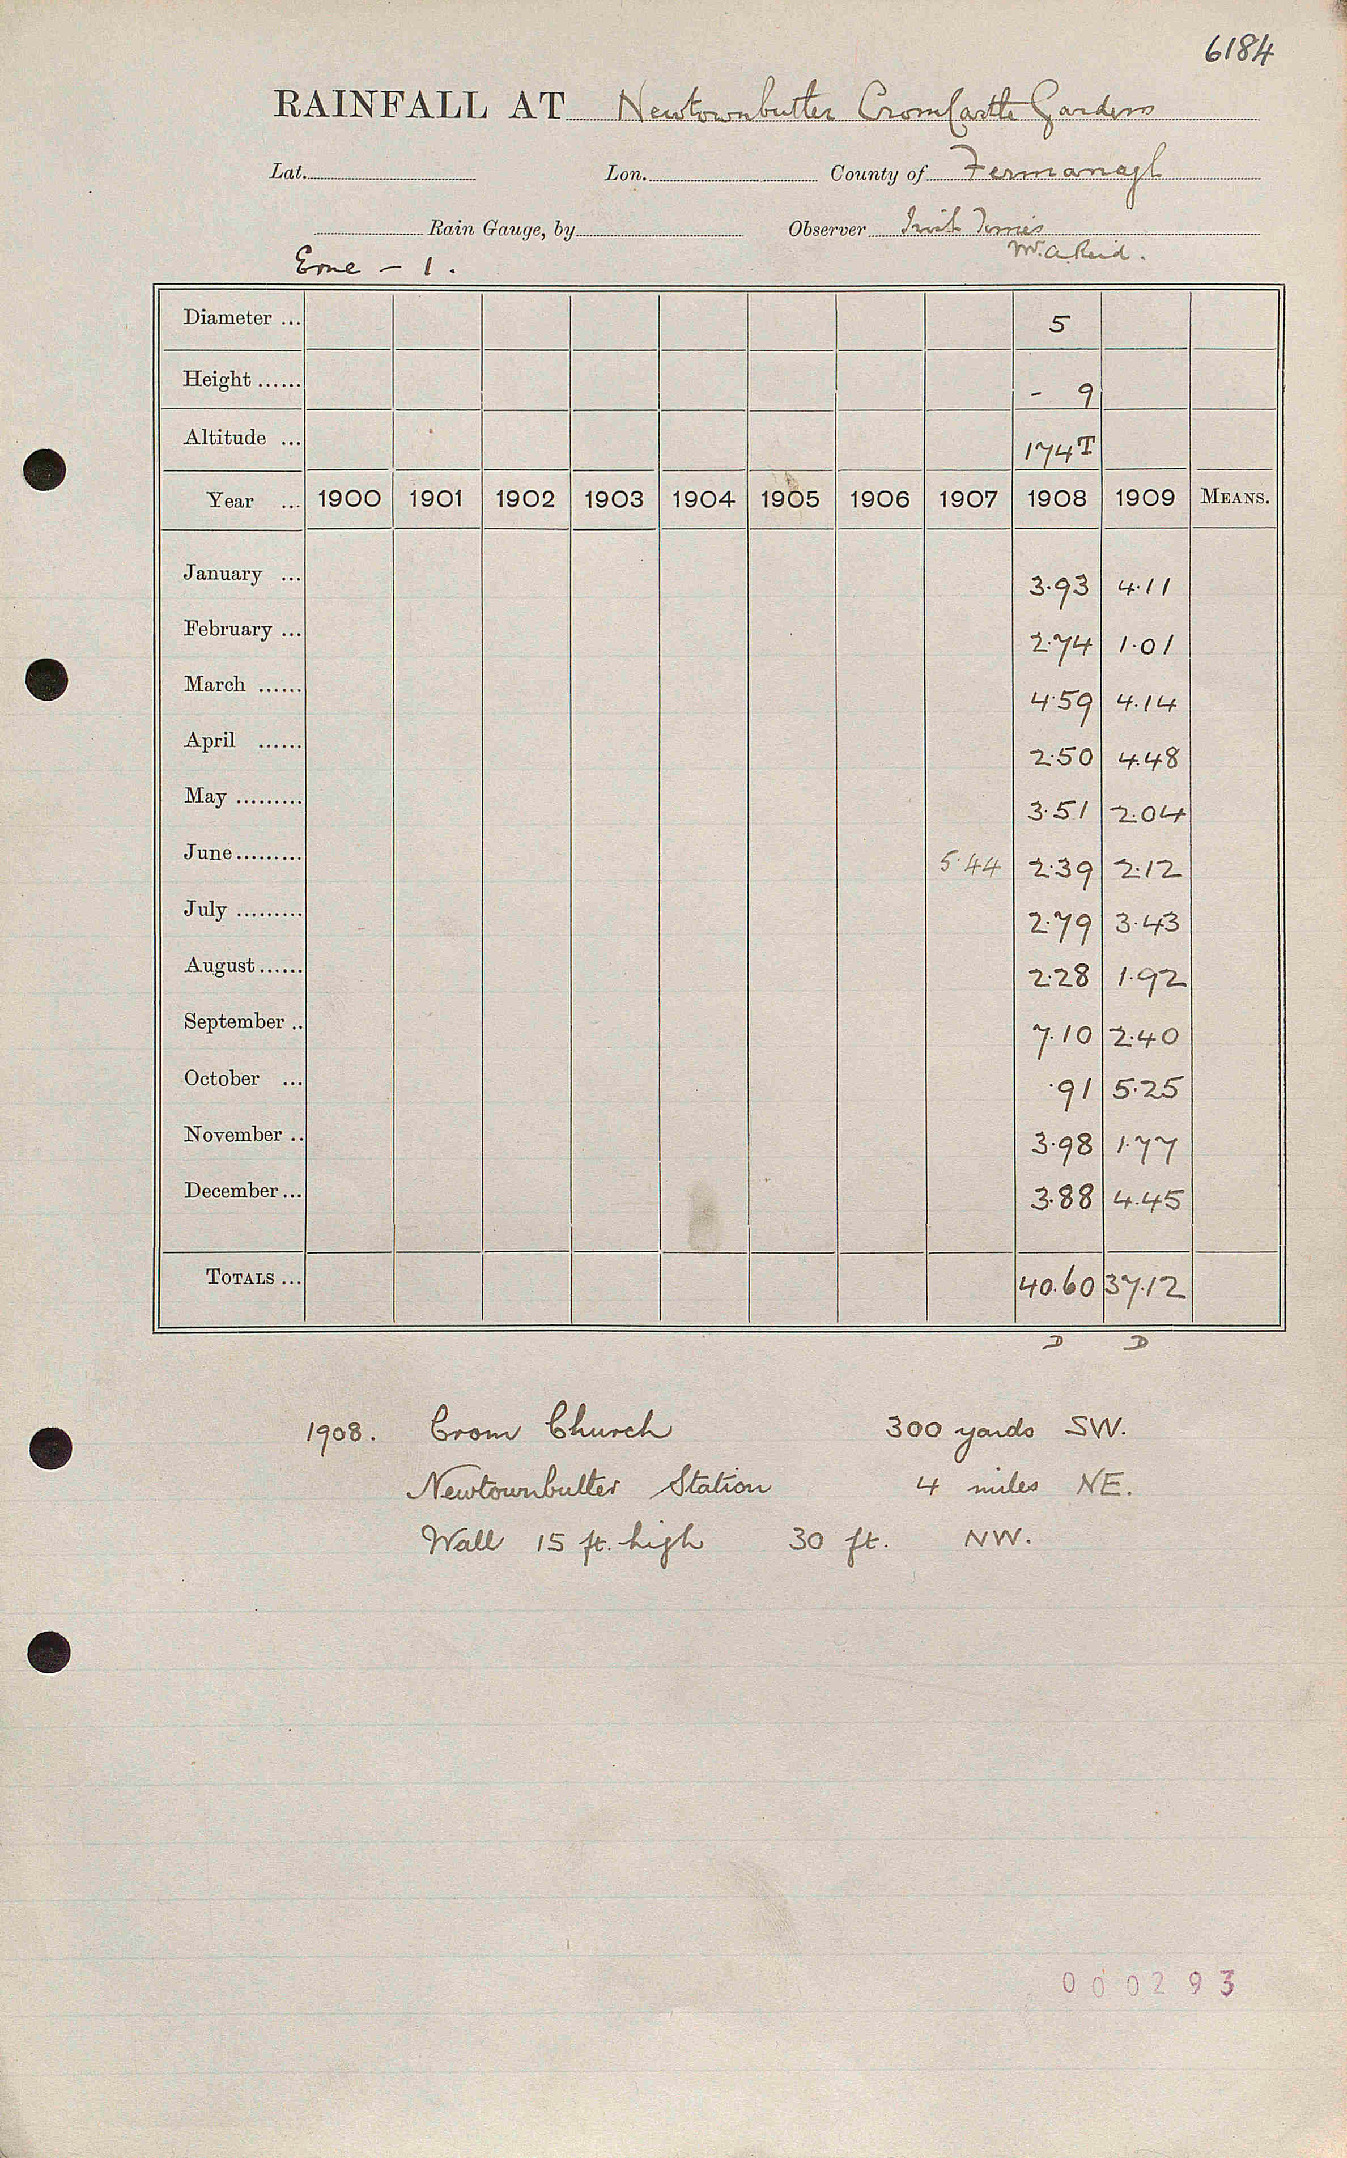 6184
RAINFALL AT Newtownbutler Crom Castle Gardens
Lat. Lon. County of Fermanagh
Rain Gauge, by Observer Irish Times
W. A. Reid.
Erne - 1.
Diameter ... 5
Height ...... - 9
Altitude ... 174 T
Year ... 1900 1901 1902 1903 1904 1905 1906 1907 1908 1909 MEANS.
January ... 3.93 4.11
February ... 2.74 1.01
March ...... 4.59 4.14
April ...... 2.50 4.48
May ......... 3.51 2.04
June......... 5.44 2.39 2.12
July ......... 2.79 3.43
August ...... 2.28 1.92
September .. 7.10 2.40
October ... .91 5.25
November .. 3.98 1.77
December ... 3.88 4.45
TOTALS ... 40.60 37.12
D D
1908. Crom Church 300 yards SW.
Newtownbutler Station 4 miles NE.
Wall 15 ft. high 30 ft. NW.
000293